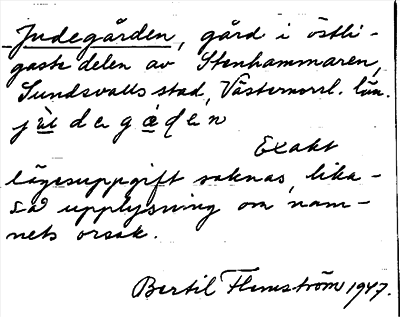 Judegården, gård i östli-
gaste delen av Stenhammaren,
Sundsvalls stad, Västernorrl. län.
jùdegȧḍen
Exakt
lägesuppgift saknas, lika-
så upplysning om nam-
nets orsak.
Bertil Flemström 1947.